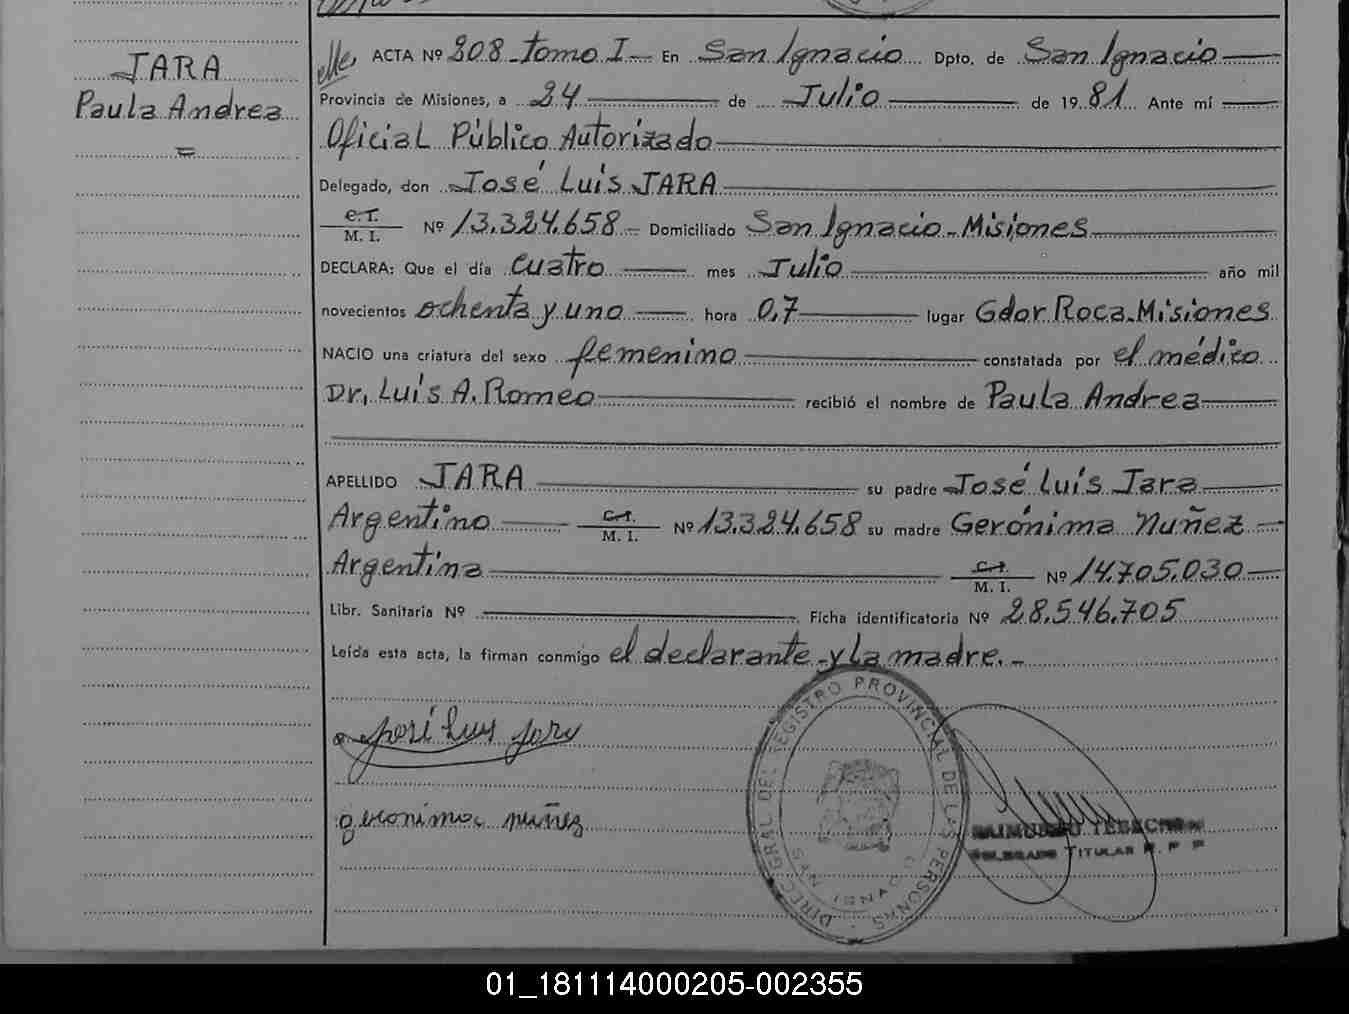 JARA
Paula Andrea
=
ACTA Nº 208 - Tomo I - En San Ignacio Dpto. de San Ignacio
Provincia de Misiones, a 24 de Julio de 1981 Ante mí
Oficial Público Autorizado
Delegado, don José Luis JARA
C.I. M. I. Nº 13.324.658 - Domiciliado San Ignacio - Misiones
DECLARA: Que el día cuatro mes Julio año mil
novecientos ochenta y uno hora 0,7 lugar Gdor Roca - Misiones
NACIO una criatura del sexo femenino constatada por el médico
Dr. Luis A. Romeo recibió el nombre de Paula Andrea
APELLIDO JARA su padre José Luis Jara
Argentino C.I. M. I. Nº 13.324.658 su madre Gerónima Nuñez
Argentina C.I. M. I. Nº 14.705.030
Libr. Sanitaria Nº Ficha identificatoria Nº 28.546.705
Leída esta acta, la firman conmigo el declarante y la madre. -
José Luis Jara
geronima nuñez
DIREC. GRAL. DEL REGISTRO PROVINCIAL DE LAS PERSONAS
SAN IGNACIO
DELEGADO TITULAR R. P. P.
01_181114000205-002355